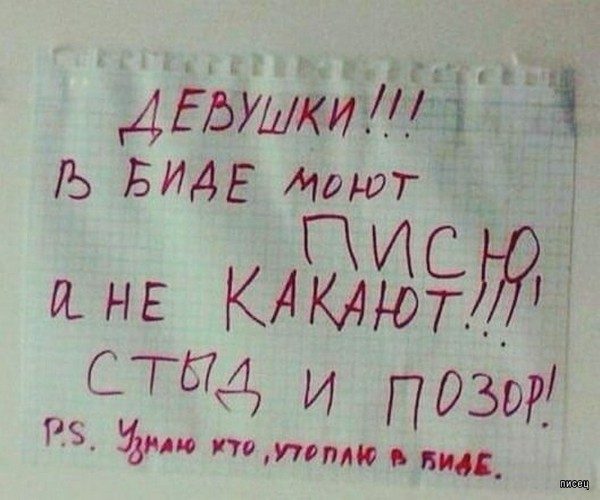 ДЕВУШКИ!!!
В БИДЕ МОЮТ
ПИСЮ,
а НЕ КАКАЮТ!!!
СТЫД И ПОЗОР!
P.S. Узнаю кто, утоплю в биде.
писец